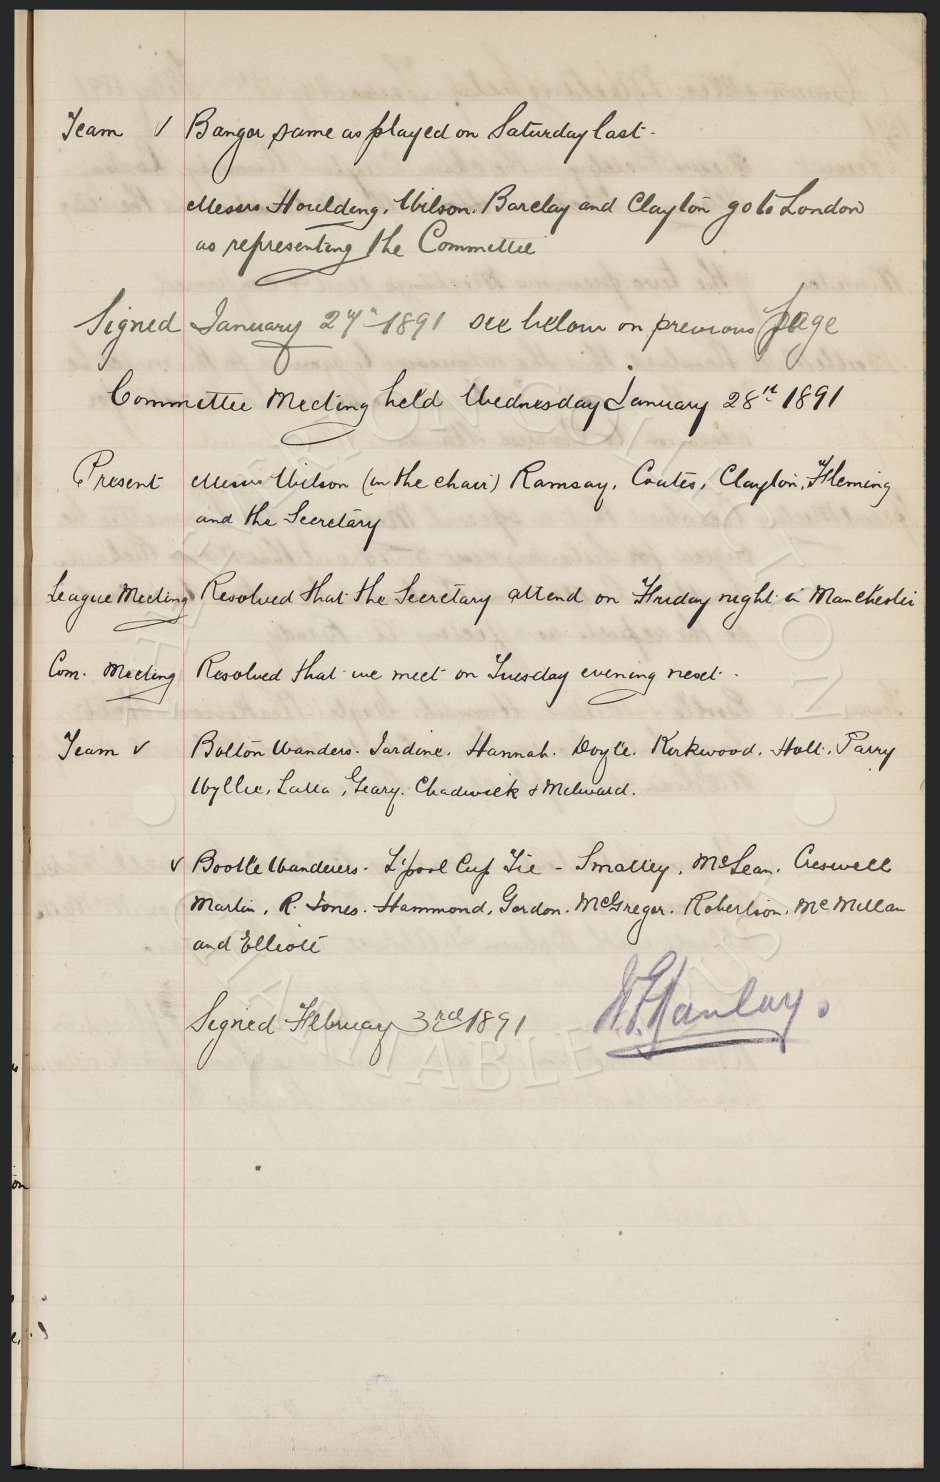 Team v Bangor same as played on Saturday last.
Messrs Houlding, Wilson, Barclay and Clayton go to London
as representing the Committee
Signed January 27th 1891 see below on previous page
Committee Meeting held Wednesday January 28th 1891
Present Messrs Wilson (in the chair) Ramsay, Coates, Clayton, Fleming
and the Secretary
League Meeting Resolved that the Secretary attend on Friday night in Manchester
Com. Meeting Resolved that we meet on Tuesday evening next.
Team v Bolton Wanders. Jardine. Hannah. Doyle. Kirkwood. Holt. Parry
Wyllie, Latta, Geary. Chadwick & Milward.
v Bootle Wanderers. L'pool Cup Tie - Smalley, McLean. Creswell
Martin, R. Jones. Hammond, Gordon. McGregor. Robertson, McMillan
and Elliott
Signed February 3rd 1891